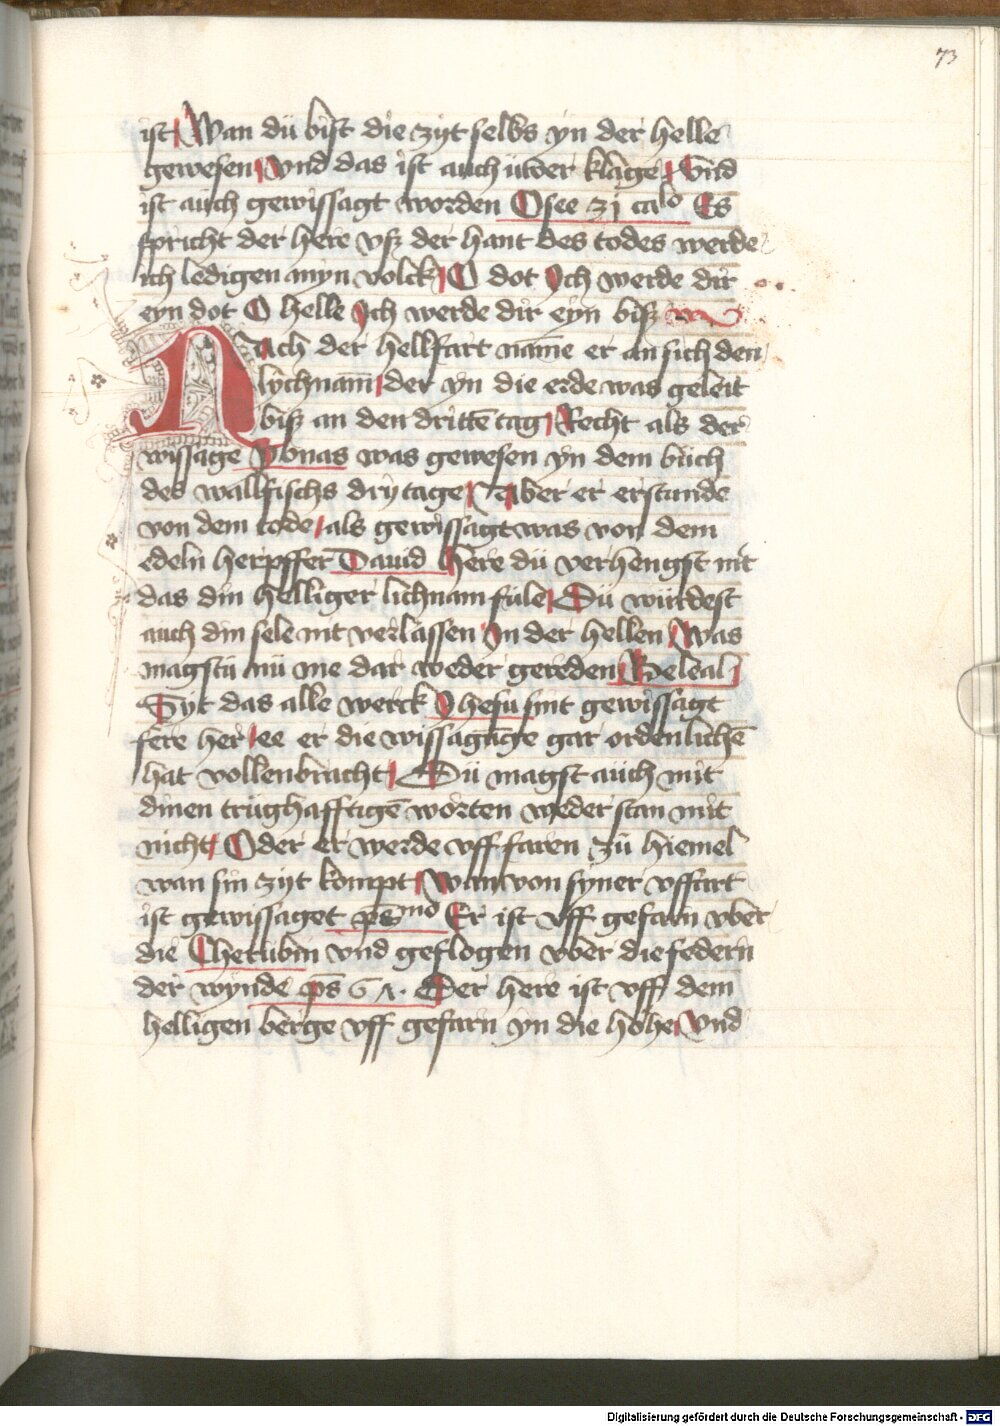 73
ist Wan dü bist die zyt selbs yn der helle
gewesen vnd das ist auch uwer klage Vnd
ist auch gewissagt worden Osee 31 ca<sup>lo</sup> Es
spricht der here vsz der hant des todes werde
ich ledigen myn volck O dot Ich werde dir
eyn dot O helle Ich werde dir eyn bisz
Nach der hellfart name er an sich den
lychnam der yn die erde was geleit
bisz an den dritte͂ tag Recht als der
wissage Yonas was gewesen yn dem buch
des wallfischs dry tage Aber er erstunde
von dem tode als gewissagt was von dem
edeln herpffer Dauid Here dü verhengst nit
das din helliger lichnam füle Dü wurdest
auch din sele nit verlassen In der hellen Was
magstu nü me dar weder gereden Beleal
Syt das alle werck Jhesu sint gewissagt
fere her ee er die wissagu͂ge gar ordenliche͂
hat vollenbracht Dü magst auch mit
dinen trughafftige͂ worten weder stan mit
nicht Oder er werde vff faren zü hiemel
wan sin zyt kompt Wan von syner vffart
ist gewissaget ps<sup>mo</sup> Er ist vff gefarn vber
die Cherubin vnd geflogen vber die federn
der wynde ps 67. Der here ist vff dem
helligen berge vff gefarn yn die hohe vnd
Digitalisierung gefördert durch die Deutsche Forschungsgemeinschaft - DFG